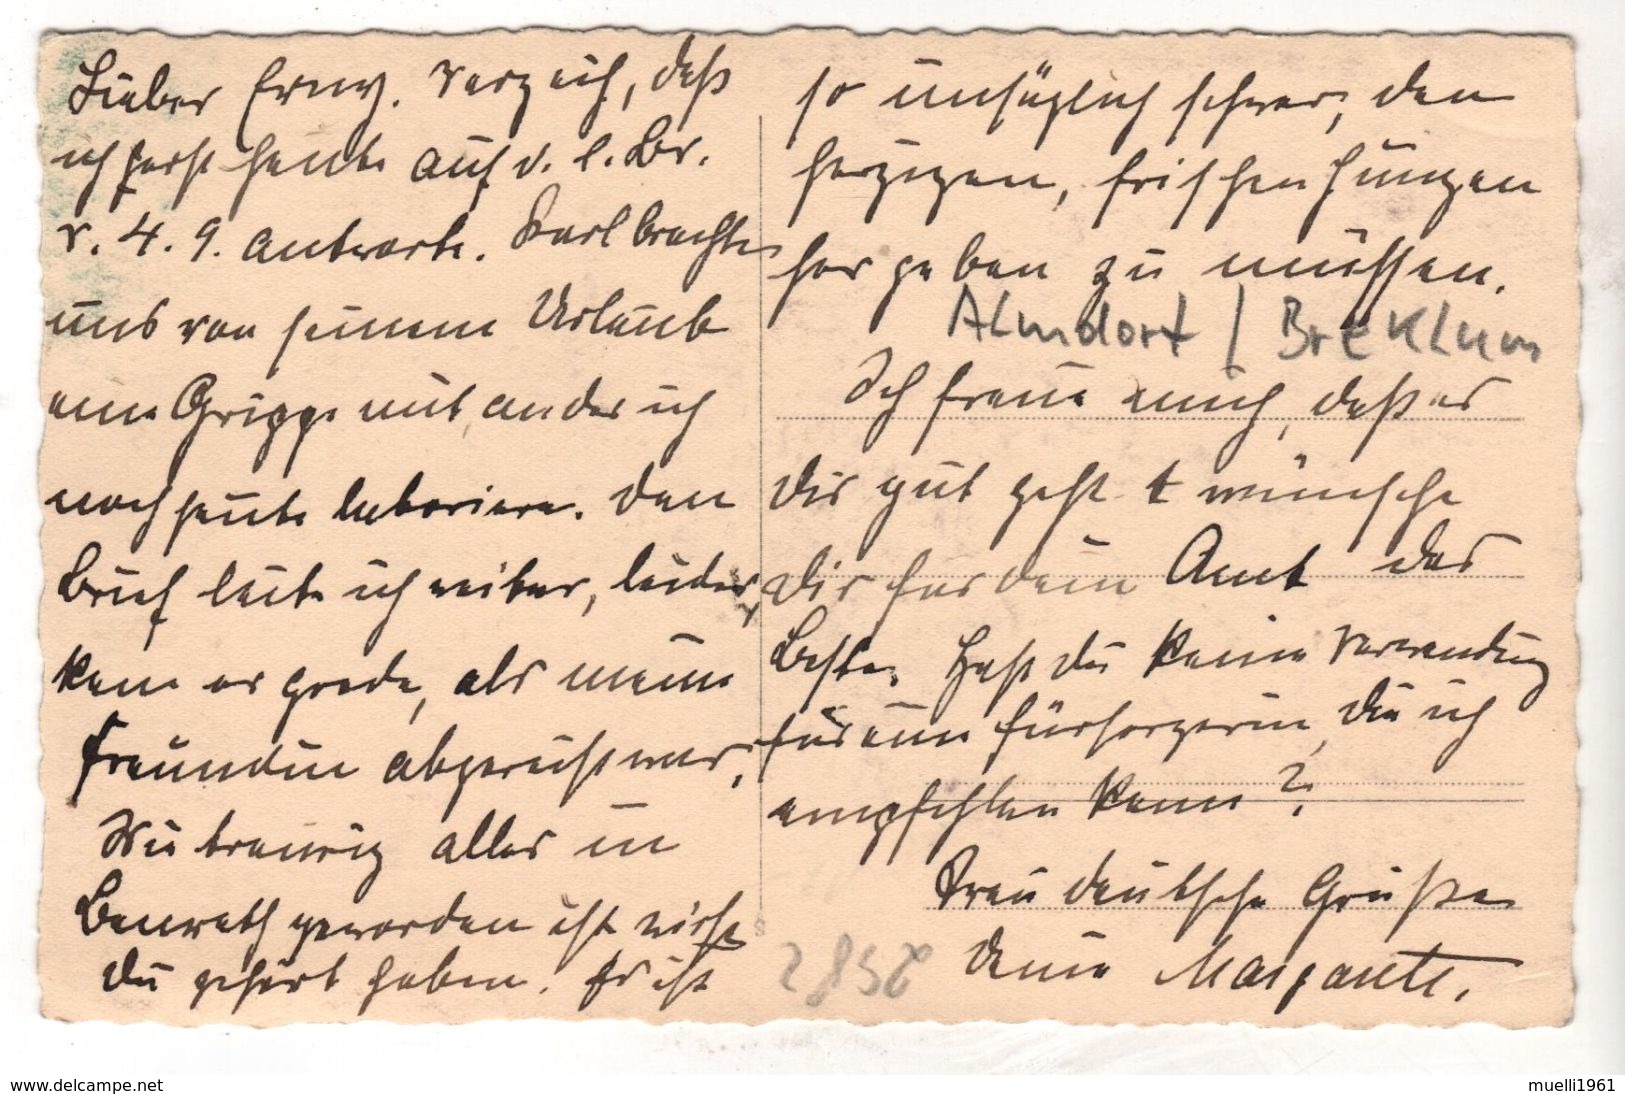 Lieber Ernst. Verzeih, daß
ich erst heute auf d. l. Br.
v. 4. 9. antworte. Karl brachte
uns von seinem Urlaub
eine Grippe mit, an der ich
noch heute laboriere. Den
Brief leite ich weiter, leider
kam er grade, als meine
Freundin abgereist war,
Wie traurig alles in
Benrath geworden ist wirst
Du gehört haben. Es ist
so unsäglich schwer, den
herzigen, frischen Jungen
hergeben zu müssen.
Almdorf / Breklum
Ich freue mich, daß es
Dir gut geht + wünsche
Dir für dein Amt das
Beste. Hast du keine Verwendung
für eine Fürsorgerin, die ich
empfehlen kann?
Treu deutsche Grüße
deine Margarete.
www.delcampe.net
muelli1961